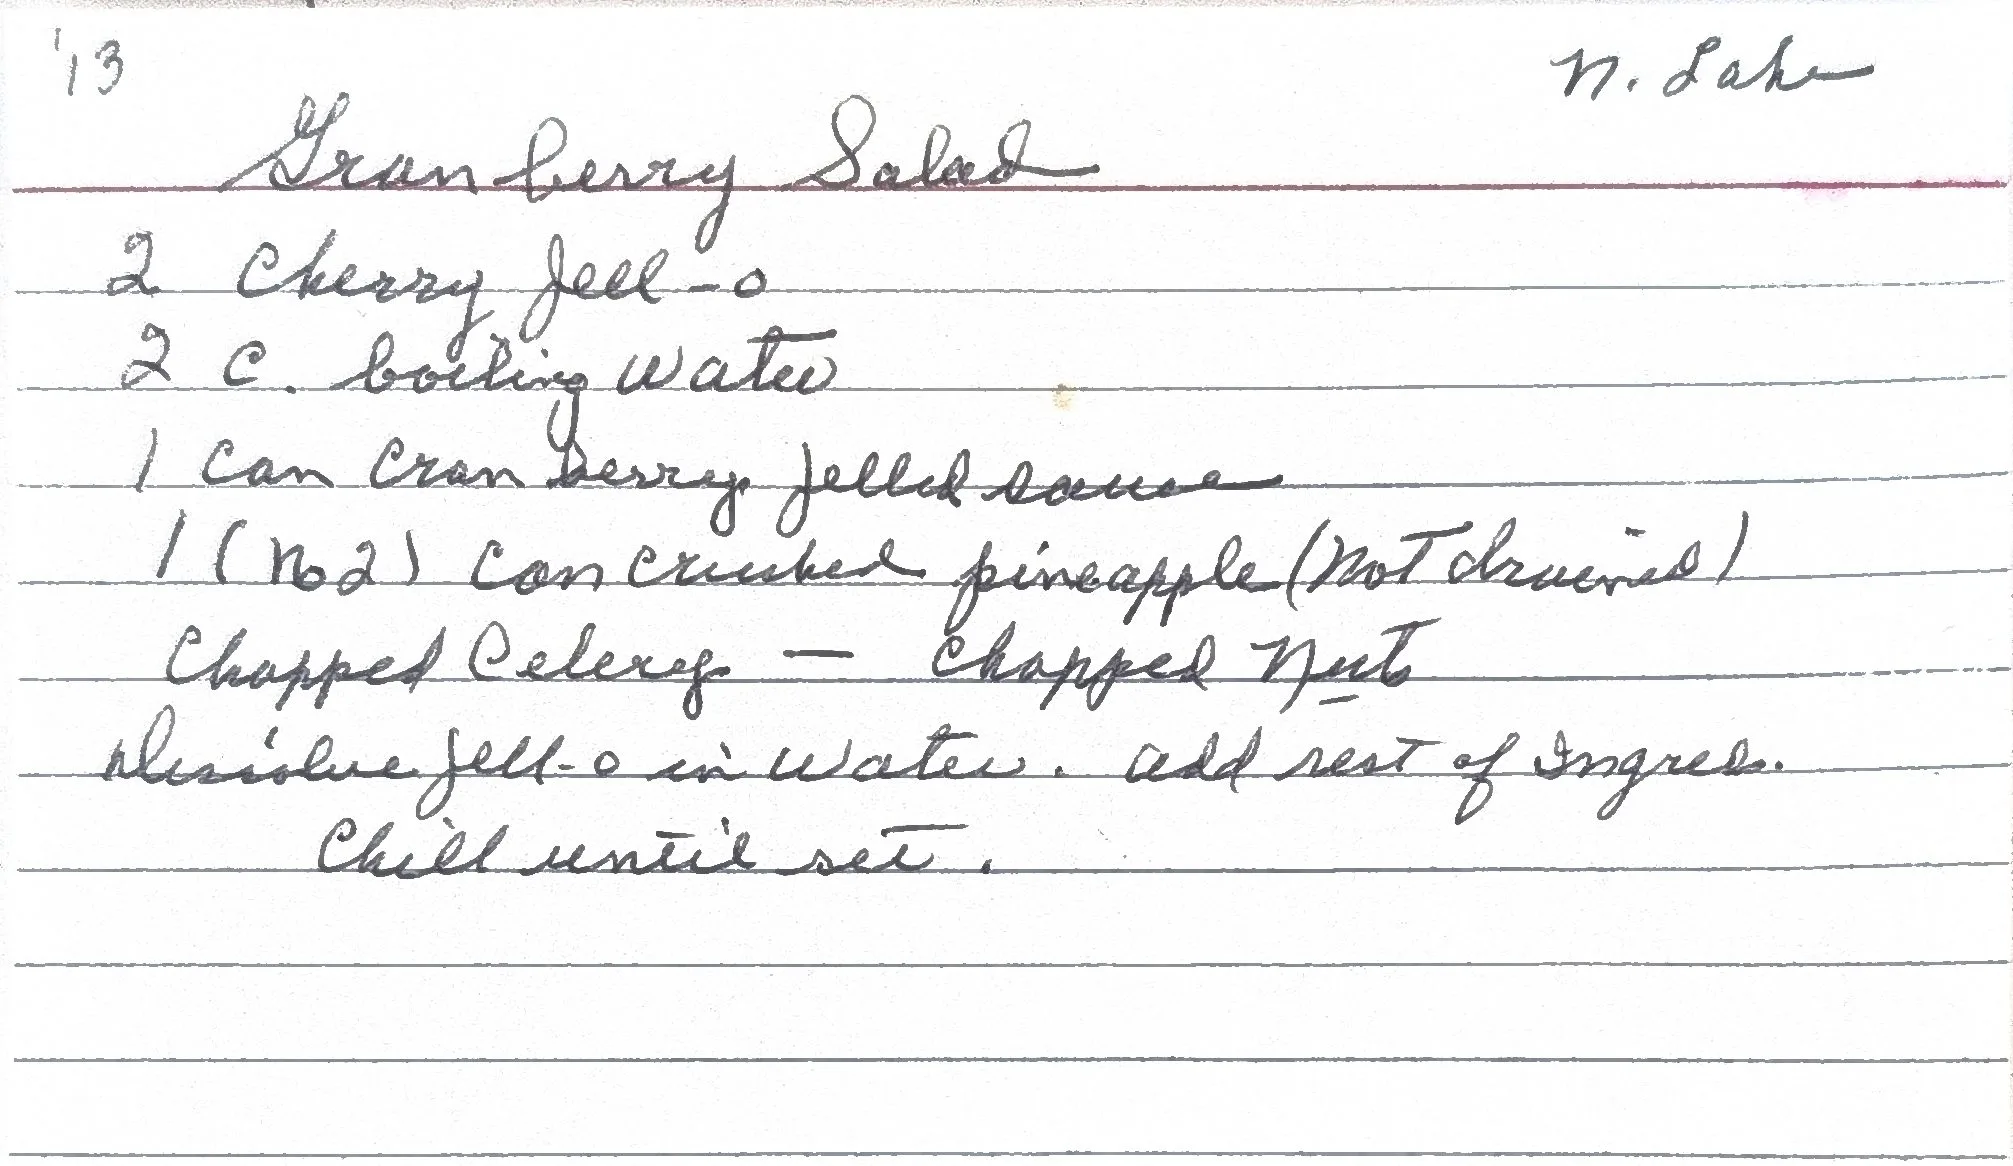 '13
N. Lake
Cranberry Salad
2 Cherry Jell-o
2 C. boiling water
1 can cranberry jelled sauce
1 (No 2) can crushed pineapple (not drained)
Chopped Celery — Chopped Nuts
Dissolve Jell-o in water. add rest of Ingred.
Chill until set.